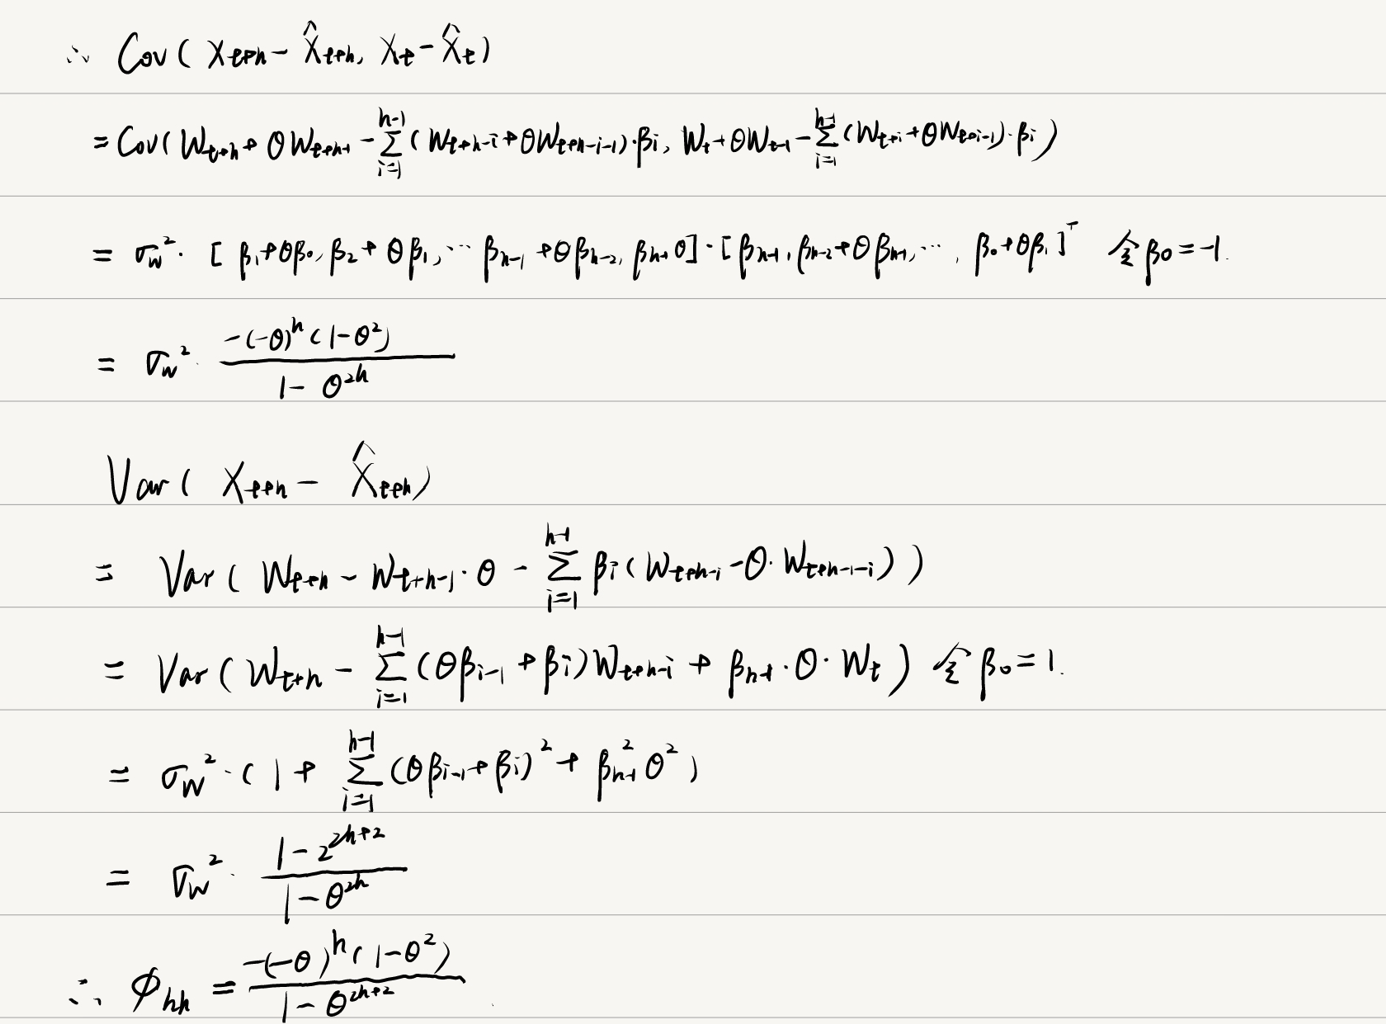 ∴ Cov( X_{t+h} - X̂_{t+h}, X_t - X̂_t )
= Cov( W_{t+h} + θW_{t+h-1} - ∑_{i=1}^{h-1} (W_{t+h-i} + θW_{t+h-i-1})·β_i, W_t + θW_{t-1} - ∑_{i=1}^{h-1} (W_{t+i} + θW_{t+i-1})·β_i )
= σ_w²· [ β_1+θβ_0, β_2+θβ_1, ⋯ β_{h-1}+θβ_{h-2}, β_{h-1}θ]·[β_{h-1}, β_{h-2}+θβ_{h-1}, ⋯, β_0+θβ_1]^T 令β_0=-1.
= σ_w²· \frac{-(-θ)^h (1-θ²)}{1-θ^{2h}}
Var( X_{t+h} - X̂_{t+h})
= Var( W_{t+h} - W_{t+h-1}·θ - ∑_{i=1}^{h-1} β_i(W_{t+h-i} - θ·W_{t+h-1-i}) )
= Var( W_{t+h} - ∑_{i=1}^{h-1} (θβ_{i-1} + β_i)W_{t+h-i} + β_{h-1}·θ·W_t ) 令β_0=1.
= σ_w²·( 1 + ∑_{i=1}^{h-1} (θβ_{i-1}+β_i)² + β_{h-1}²θ² )
= σ_w²· \frac{1-2^{2h+2}}{1-θ^{2h}}
∴ φ_{hh} = \frac{-(-θ)^h (1-θ²)}{1-θ^{2h+2}}